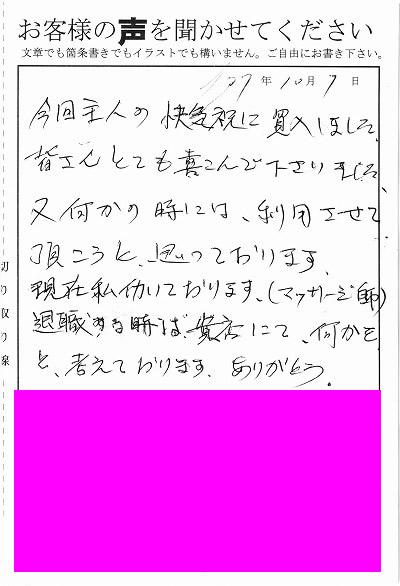 お客様の声を聞かせてください
文章でも箇条書きでもイラストでも構いません。ご自由にお書き下さい。
27年10月7日
今回主人の快気祝に買入しました、
皆さんとても喜こんで下さいました、
又何かの時には、利用させて
頂こうと、思っております、
現在私働いております、(マッサージ師)
退職する時は、貴店にて、何かを
と、考えております、ありがとう。
切り取り線